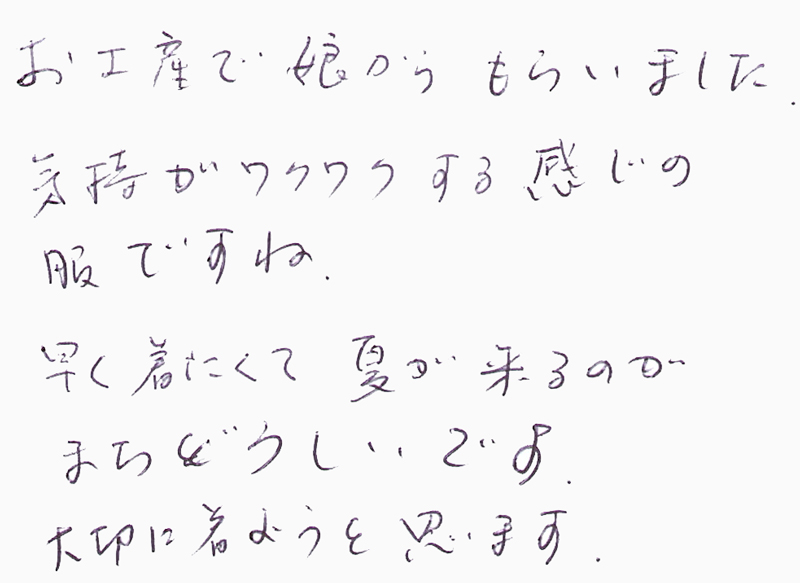 お土産で娘からもらいました.
気持がワクワクする感じの
服ですね.
早く着たくて夏が来るのが
まちどうしいです.
大切に着ようと思います.